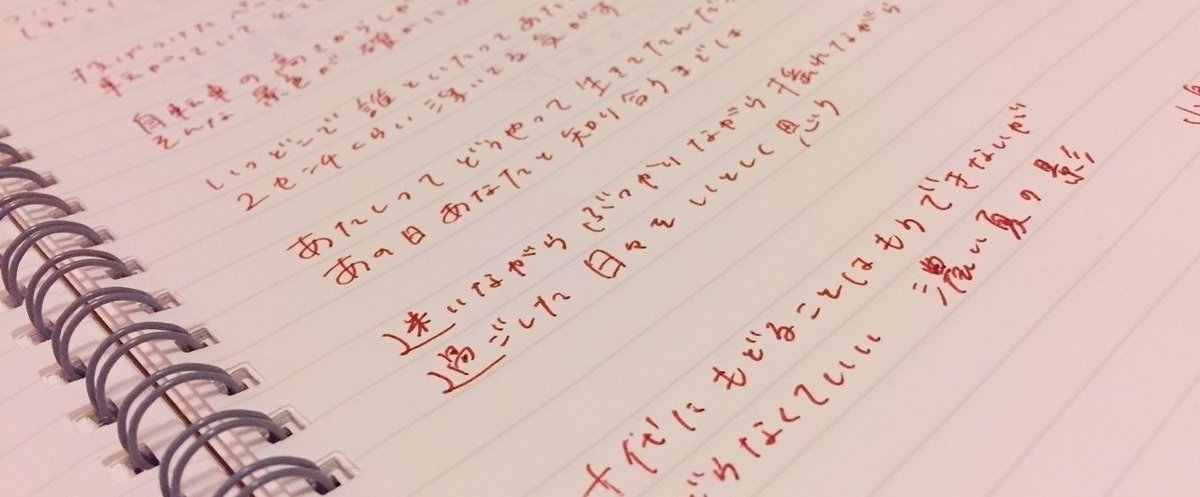 投げつけたペ
転がっていて
自転車の高さからしか
そんな景色が確かに
いつどこで誰といたってあた
2センチくらい浮いてる気がす
あたしってどうやって生きてたんだ
あの日あなたと知り合うまでは
迷いながらぶつかりながら揺れながら
過ごした日々をいとしく思う
十代にもどることはもうできないが
どらなくていい 濃い夏の影